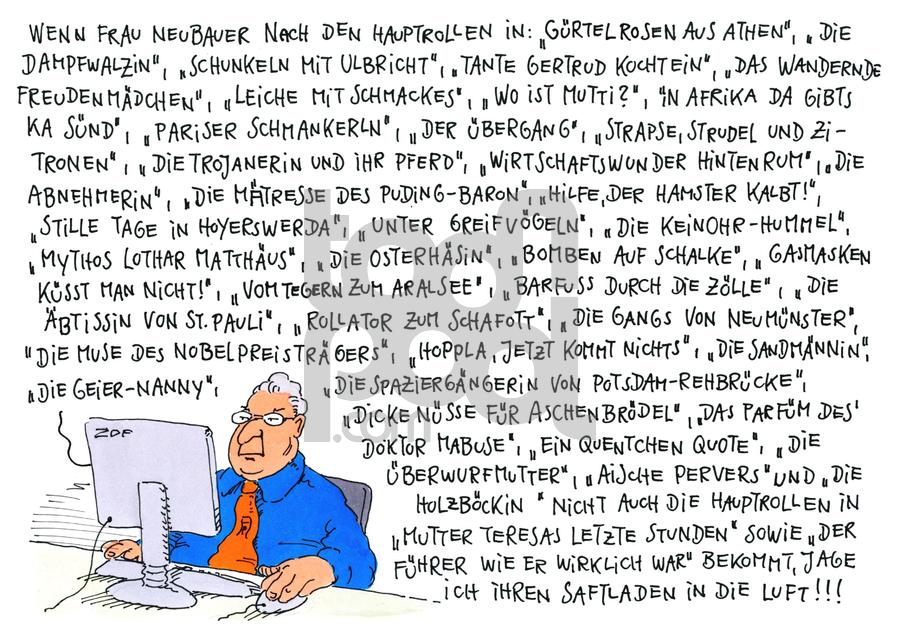 WENN FRAU NEUBAUER NACH DEN HAUPTROLLEN IN: „GÜRTELROSEN AUS ATHEN", „DIE
DAMPFWALZIN", „SCHUNKELN MIT ULBRICHT", „TANTE GERTRUD KOCHT EIN", „DAS WANDERNDE
FREUDENMÄDCHEN", „LEICHE MIT SCHMACKES", „WO IST MUTTI?", "IN AFRIKA DA GIBTS
KA SÜND", „PARISER SCHMANKERLN", „DER ÜBERGANG", „STRAPSE, STRUDEL UND ZI-
TRONEN", „DIE TROJANERIN UND IHR PFERD", „WIRTSCHAFTSWUNDER HINTENRUM", „DIE
ABNEHMERIN", „DIE MÄTRESSE DES PUDING-BARON", „HILFE, DER HAMSTER KALBT!",
„STILLE TAGE IN HOYERSWERDA", „UNTER GREIFVÖGELN", „DIE KEINOHR-HUMMEL",
„MYTHOS LOTHAR MATTHÄUS", „DIE OSTERHÄSIN", „BOMBEN AUF SCHALKE", „GASMASKEN
KÜSST MAN NICHT!", „VOM TEGERN ZUM ARALSEE", „BARFUSS DURCH DIE ZÖLLE", „DIE
ÄBTISSIN VON ST. PAULI", „ROLLATOR ZUM SCHAFOTT", „DIE GANGS VON NEUMÜNSTER",
"DIE MUSE DES NOBELPREISTRÄGERS", „HOPPLA, JETZT KOMMT NICHTS", „DIE SANDMÄNNIN",
„DIE GEIER-NANNY", „DIE SPAZIERGÄNGERIN VON POTSDAM-REHBRÜCKE",
„DICKE NÜSSE FÜR ASCHENBRÖDEL", „DAS PARFÜM DES
DOKTOR MABUSE", „EIN QUENTCHEN QUOTE", „DIE
ÜBERWURFMUTTER", „AISCHE PERVERS" UND „DIE
HOLZBÖCKIN" NICHT AUCH DIE HAUPTROLLEN IN
„MUTTER TERESAS LETZTE STUNDEN" SOWIE „DER
FÜHRER WIE ER WIRKLICH WAR" BEKOMMT, JAGE
ICH IHREN SAFTLADEN IN DIE LUFT!!!
ZDF
toonpool
.com